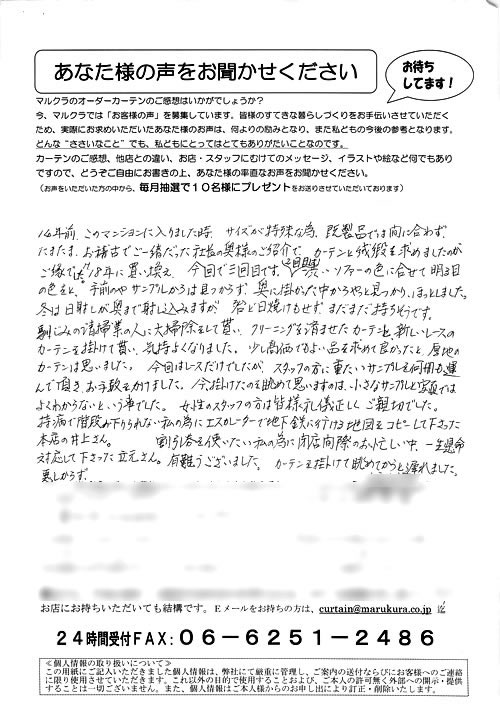 あなた様の声をお聞かせください
お待ち
してます！
マルクラのオーダーカーテンのご感想はいかがでしょうか？
今、マルクラでは「お客様の声」を募集しています。皆様のすてきな暮らしづくりをお手伝いさせていただく
ため、実際にお求めいただいたあなた様のお声は、何よりの励みとなり、また私どもの今後の参考となります。
どんな“ささいなこと”でも、私どもにとってはとてもありがたいことなのです。
カーテンのご感想、他店との違い、お店・スタッフにむけてのメッセージ、イラストや絵など何でもあり
ますので、どうぞご自由にお書きの上、あなた様の率直なお声をお聞かせください。
（お声をいただいた方の中から、毎月抽選で１０名様にプレゼントをお送りさせていただいております）
14年前、このマンションに入りました時、サイズが特殊な為、既製品では間に合わず、
たまたま、お稽古でご一緒だった社長の奥様のご紹介で、カーテンと絨毯を求めましたのが
ご縁で、18年に買い換え、今回で三回目です。渋いソファーの色に合せて明る目
の色をと、手前のサンプルからは見つからず、奥に掛かった中からやっと見つかり、ほっとしました。
冬は日射しが奥まで射し込みますが、殆ど日焼けもせず、まだまだ持ちそうです。
馴じみの清掃業の人に大掃除をして貰い、クリーニングを済ませたカーテンと、新しいレースの
カーテンを掛けて貰い、気持よくなりました。少し高価でもよい品を求めて良かったと、厚地の
カーテンは思いました。今回はレースだけでしたが、スタッフの方に重たいサンプルを何冊も運
んで頂き、お手数をかけました。今掛けたのを眺めて思いますのは、小さなサンプルと写真では
よくわからないという事でした。女性のスタッフの方は皆様礼儀正しくご親切でした。
持病で階段が下りられない私の為にエスカレーターで地下鉄に行ける地図をコピーして下さった
本店の井上さん。割引券を使いたい私の為に閉店間際のお忙しい中、一生懸命
対応して下さった立元さん。有難うございました。カーテンを掛けて眺めてからと遅れました。
悪しからず。
お店にお持ちいただいても結構です。Ｅメールをお持ちの方は、curtain@marukura.co.jp に
２４時間受付ＦＡＸ：０６－６２５１－２４８６
≪個人情報の取り扱いについて≫
この用紙にご記入いただきました個人情報は、弊社にて厳重に管理し、ご案内の送付ならびにお客様へのご連絡
に限り使用させていただきます。これ以外の目的で使用することおよび、ご本人の許可無く外部への開示・提供
することは一切ございません。また、個人情報はご本人様からのお申し出により訂正・削除いたします。